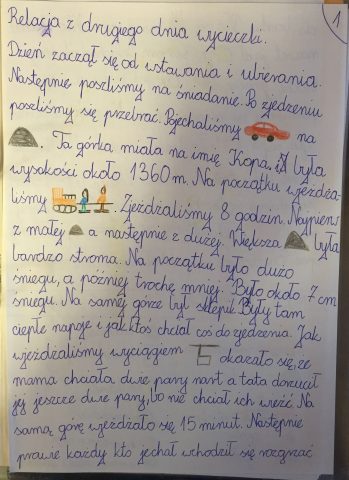 1
Relacja z drugiego dnia wycieczki.
Dzień zaczął się od wstawania i ubierania.
Następnie poszliśmy na śniadanie. Po zjedzeniu
poszliśmy się przebrać. Pojechaliśmy na
. Ta górka miała na imię Kopa. i była
wysokości około 1360 m. Na początku wjeżdża-
liśmy . Zjeżdżaliśmy 8 godzin. Najpierw
z małej a następnie z dużej. Większa była
bardzo stroma. Na początku było dużo
śniegu, a później trochę mniej. Było około 7 cm
śniegu. Na samej górze był sklepik. Były tam
ciepłe napoje i jak ktoś chciał coś do zjedzenia. Jak
wjeżdżaliśmy wyciągiem okazało się, że
mama chciała dwie pary nart a tata dorzucił
jej jeszcze dwie pary, bo nie chciał ich wieźć. Na
samą górę wjeżdżało się 15 minut. Następnie
prawie każdy kto jechał wchodził się rozgrzać